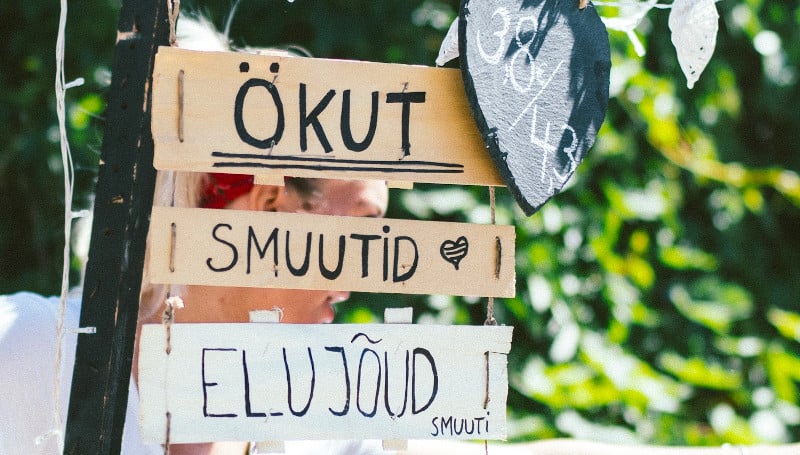 38/43
ÖKUT
SMUUTID
ELUJÕUD
SMUUTI